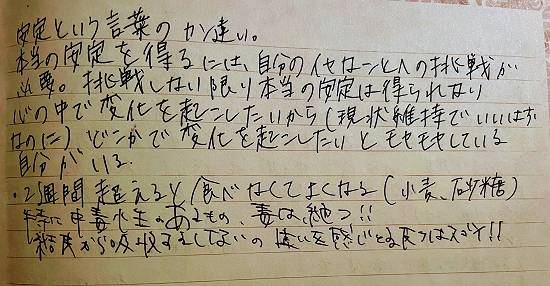 安定という言葉のかん違い。
本当の安定を得るには、自分のイヤなことへの挑戦が
必要。挑戦しない限り本当の安定は得られない
心の中で変化を起こしたいから(現状維持でいいはず
なのに)どこかで変化を起こしたいとモヤモヤしている
自分がいる。
・2週間超えると食べなくてよくなる(小麦、砂糖)
特に中毒性のあるもの、毒は絶つ!!
から吸収するしないの違いを感じとる